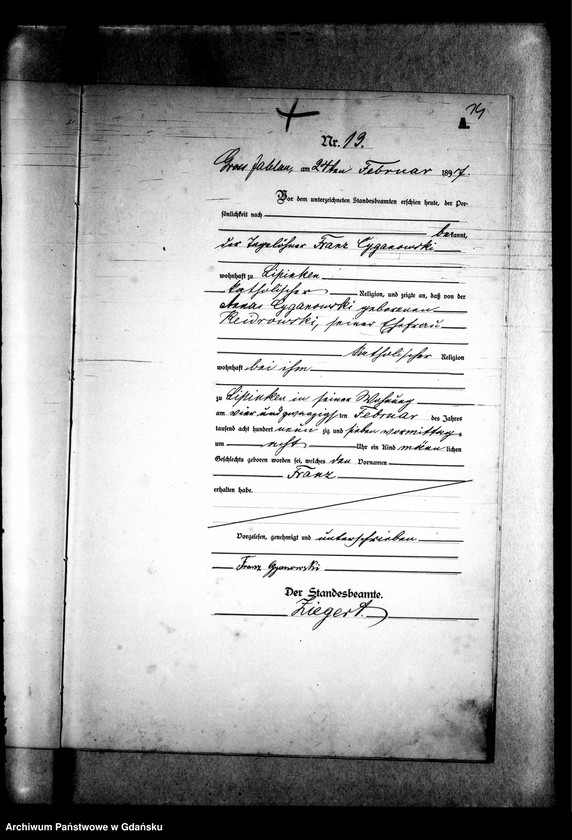 14
A.
Nr. 13.
Gross Jablau, am 24ten Februar 1897.
Vor dem unterzeichneten Standesbeamten erschien heute, der Per-
sönlichkeit nach
bekannt,
der Tagelöhner Franz Cyganowski
wohnhaft zu Lipinken
katholischer Religion, und zeigte an, daß von der
Anna Cyganowski geborenen
seiner Ehefrau
katholischer Religion
wohnhaft bei ihm
zu Lipinken in seiner Wohnung
am vier und zwanzigsten Februar des Jahres
tausend acht hundert neun zig und sieben vormittags
um acht Uhr ein Kind männlichen
Geschlechts geboren worden sei, welches den Vornamen
Franz
erhalten habe.
Vorgelesen, genehmigt und unterschrieben
Franz
Der Standesbeamte.
Ziegert
Archiwum Państwowe w Gdańsku